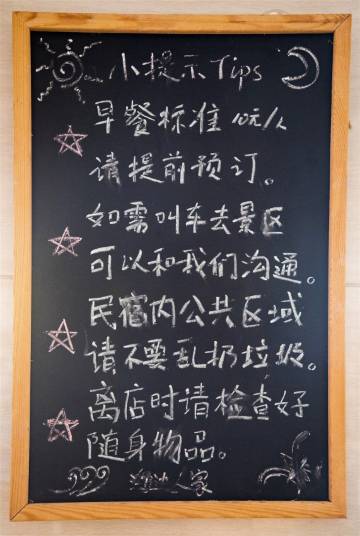 小提示Tips
早餐标准10元/人
请提前预订。
如需叫车去景区
可以和我们沟通。
民宿内公共区域
请不要乱扔垃圾。
离店时请检查好
随身物品。
人家